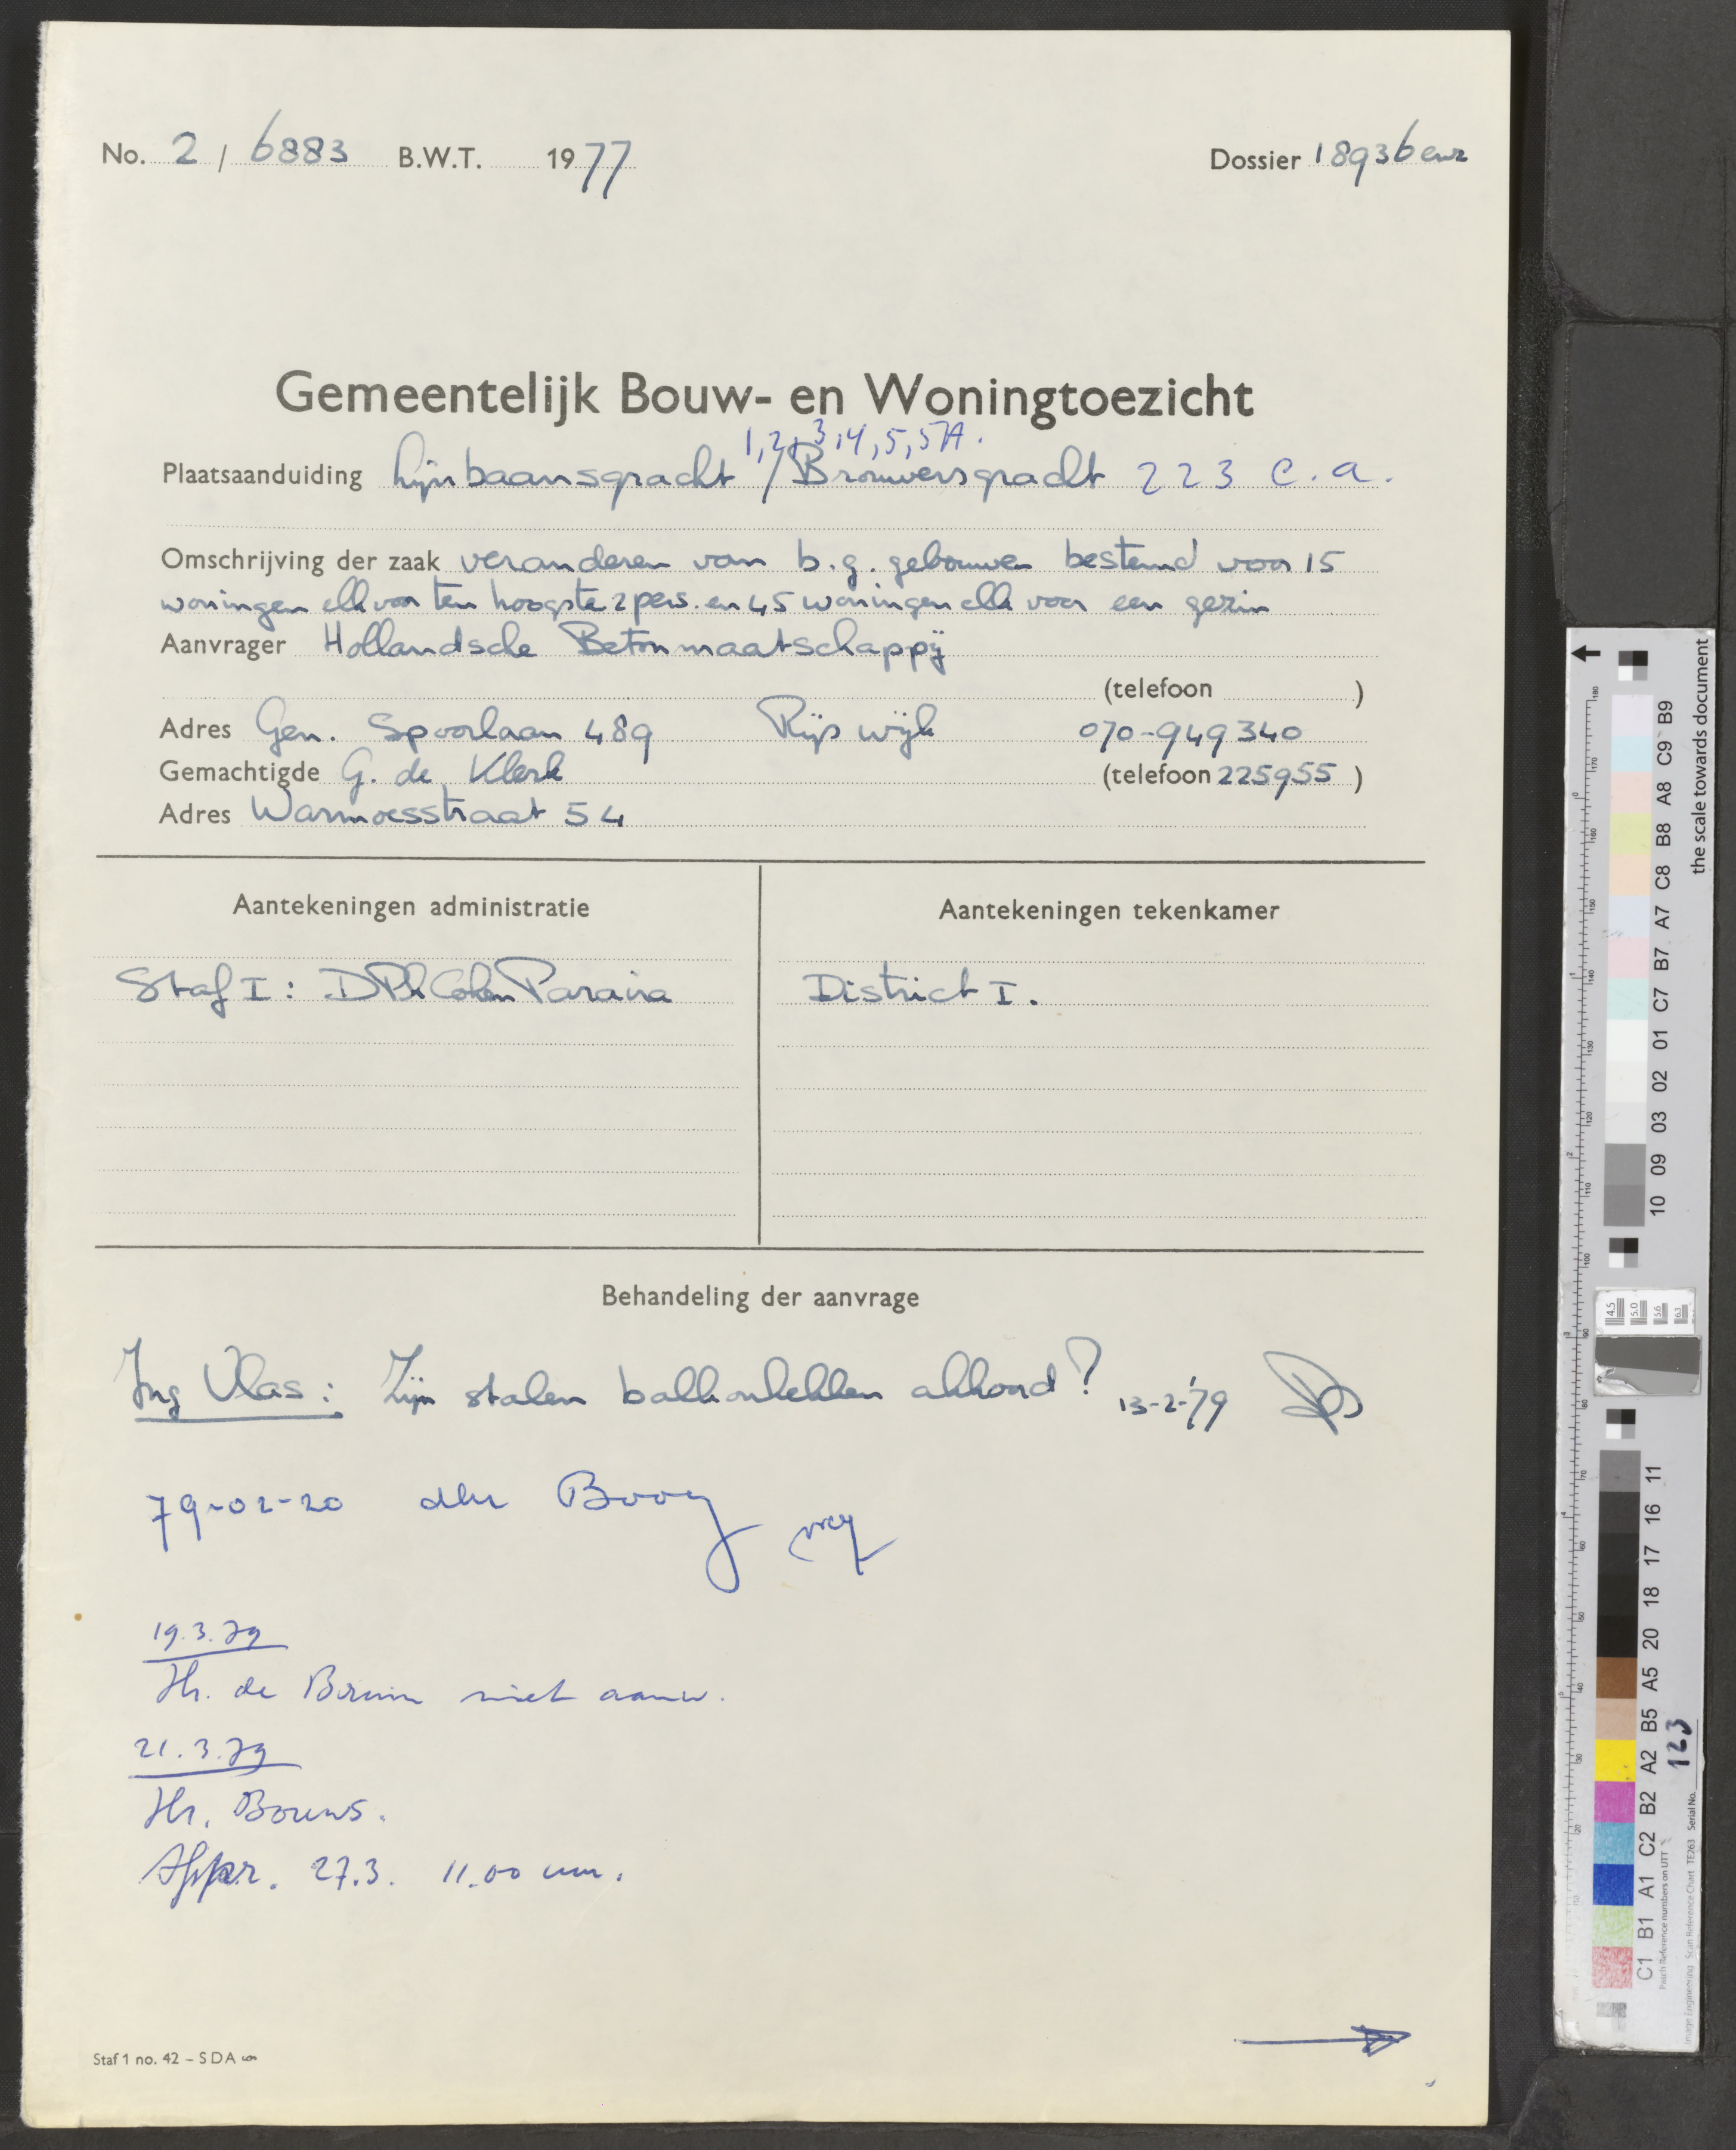 No. 2 / 6883 B.W.T. 1977 Dossier 18936 enz
Gemeentelijk Bouw- en Woningtoezicht
1, 2, 3, 4, 5, 5A.
Plaatsaanduiding Lijnbaansgracht / Brouwersgracht 223 c.a.
Omschrijving der zaak veranderen van b.g. gebouwen bestemd voor 15
woningen elk voor ten hoogste 2 pers. en 45 woningen elk voor een gezin
Aanvrager Hollandsche Betonmaatschappij
(telefoon )
Adres Gen. Spoorlaan 489 Rijswijk 070-949340
Gemachtigde G. de Klerk (telefoon 225955 )
Adres Warmoesstraat 54
Aantekeningen administratie
Aantekeningen tekenkamer
Staf I: D Ph Cohen Paraira
District I.
Behandeling der aanvrage
Ing Vlas: Zijn stalen balkonhekken akkoord? 13-2-'79
79-02-20 dhr Booy
19.3.79
Hr. de Bruin niet aanw.
21.3.79
Hr. Bouws.
Afspr. 27.3. 11.00 uur.
Staf 1 no. 42 – SDA
the scale towards document
B9 C9 A8 B8 C8 A7 B7 C7 01 02 03 09 10
4.5 5.0 5.6 6.3
11 16 17 18 20 A5 B5 A2 B2 C2 A1 B1 C1
Patch Reference numbers on UTT
Image Engineering Scan Reference Chart TE263 Serial No. 123